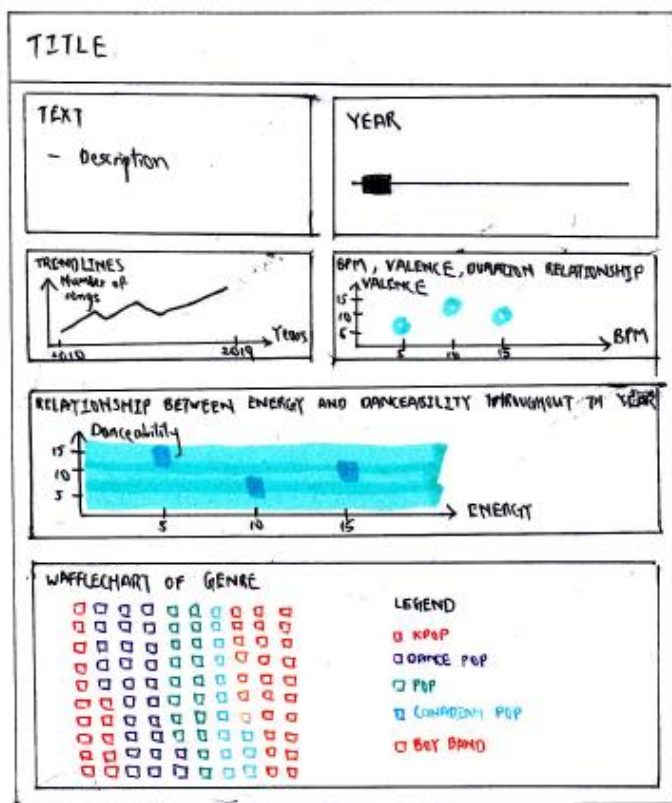 TITLE
TEXT
- Description
YEAR
TRENDLINES
Number of
songs
Years
2010
2019
BPM, VALENCE, DURATION RELATIONSHIP
VALENCE
15
10
5
5
10
15
BPM
RELATIONSHIP BETWEEN ENERGY AND DANCEABILITY THROUGHOUT YEAR
Danceability
15
10
5
5
10
15
ENERGY
WAFFLECHART OF GENRE
LEGEND
KPOP
DANCE POP
POP
BOY BAND